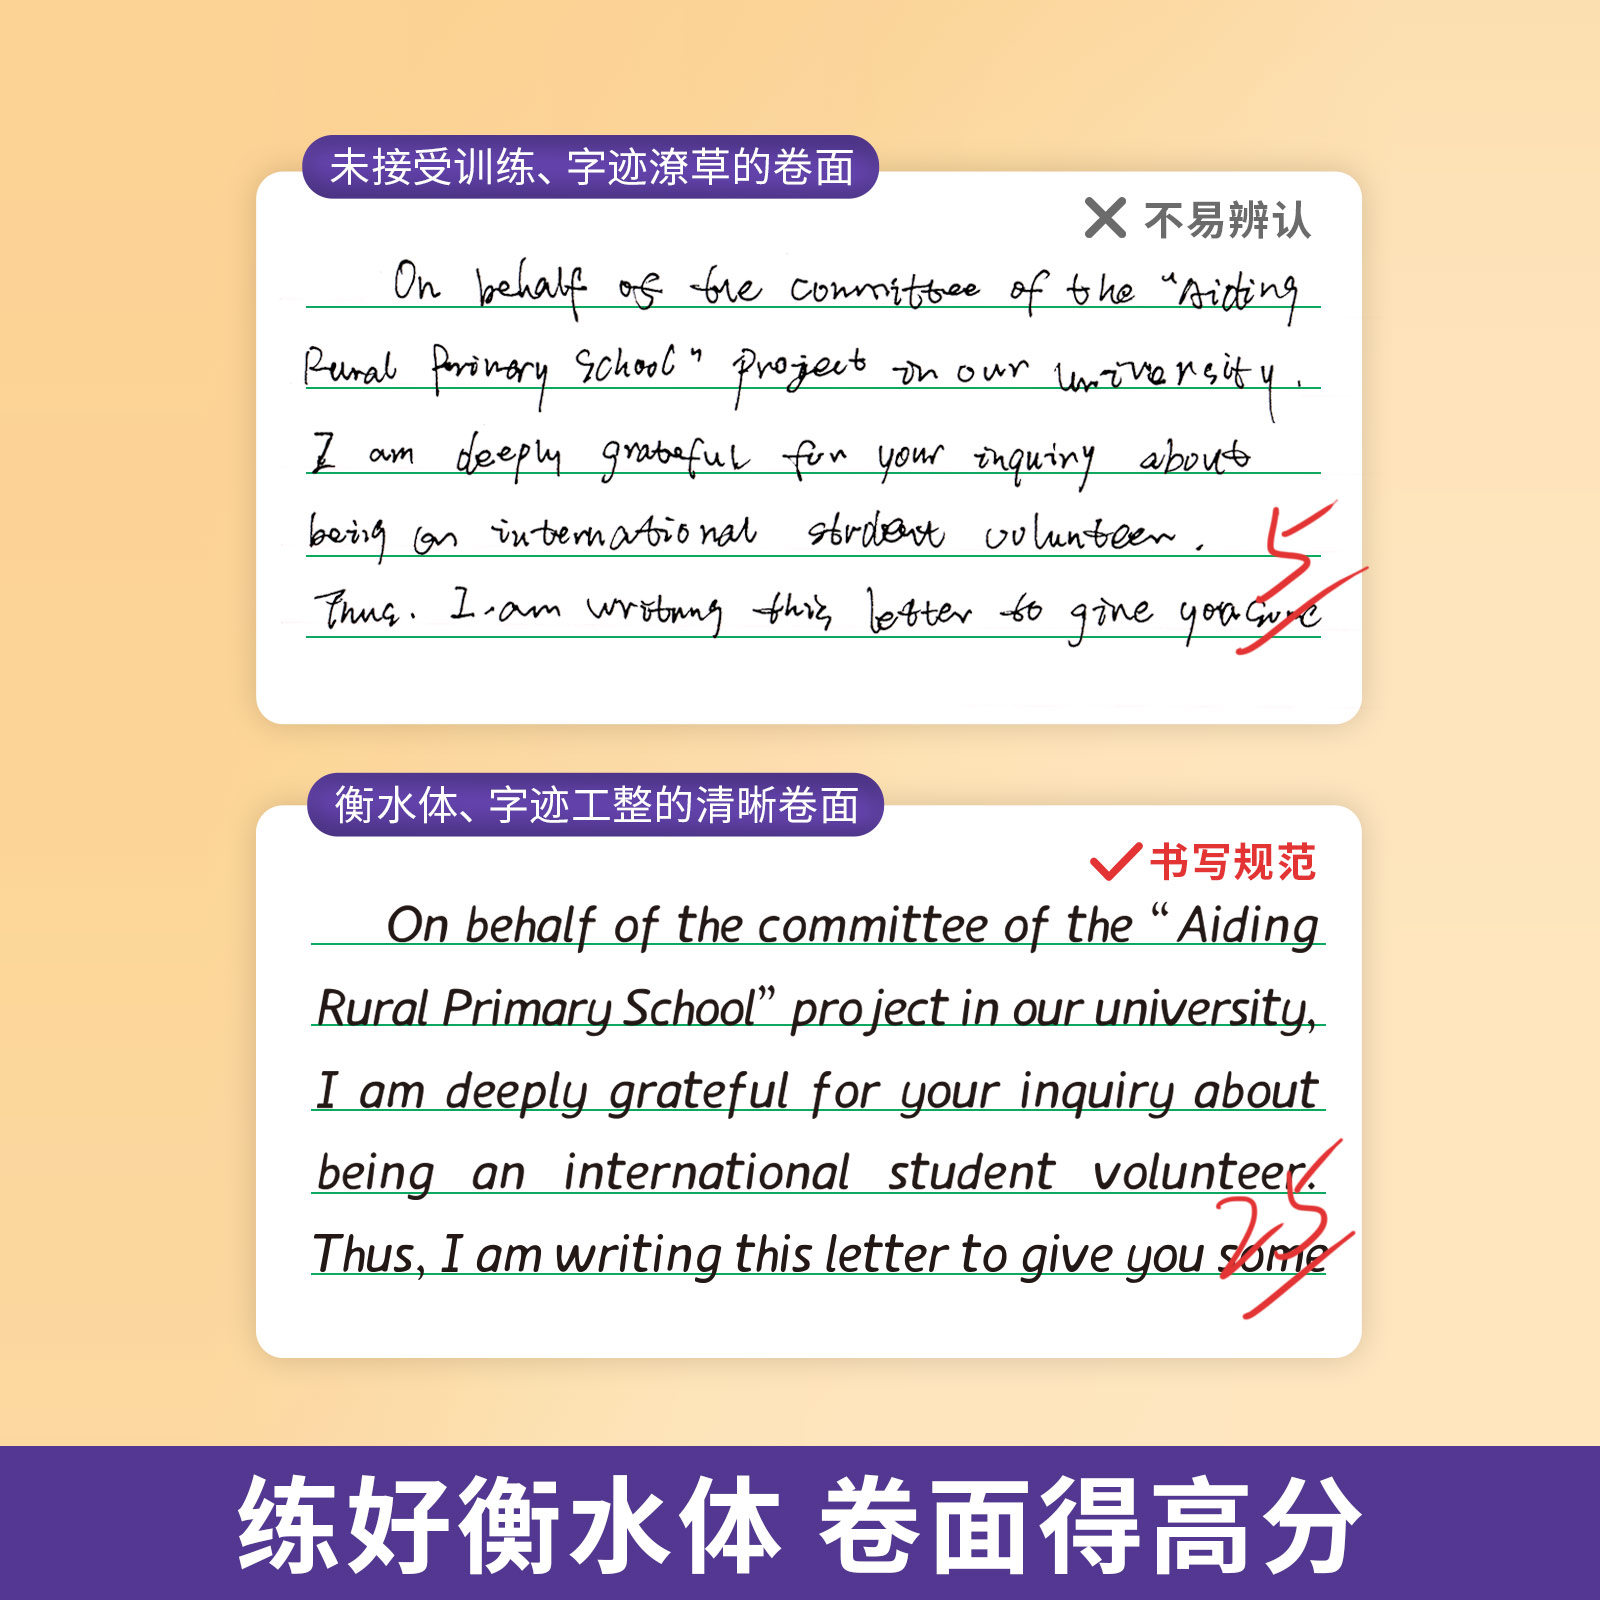 未接受训练、字迹潦草的卷面
不易辨认
On behalf of the committee of the “Aiding
Rural Primary School” project in our university.
I am deeply grateful for your inquiry about
being an international student volunteer.
Thus. I am writing this letter to give you some
5
衡水体、字迹工整的清晰卷面
书写规范
On behalf of the committee of the “Aiding
Rural Primary School” project in our university,
I am deeply grateful for your inquiry about
being an international student volunteer.
Thus, I am writing this letter to give you some
25
练好衡水体 卷面得高分